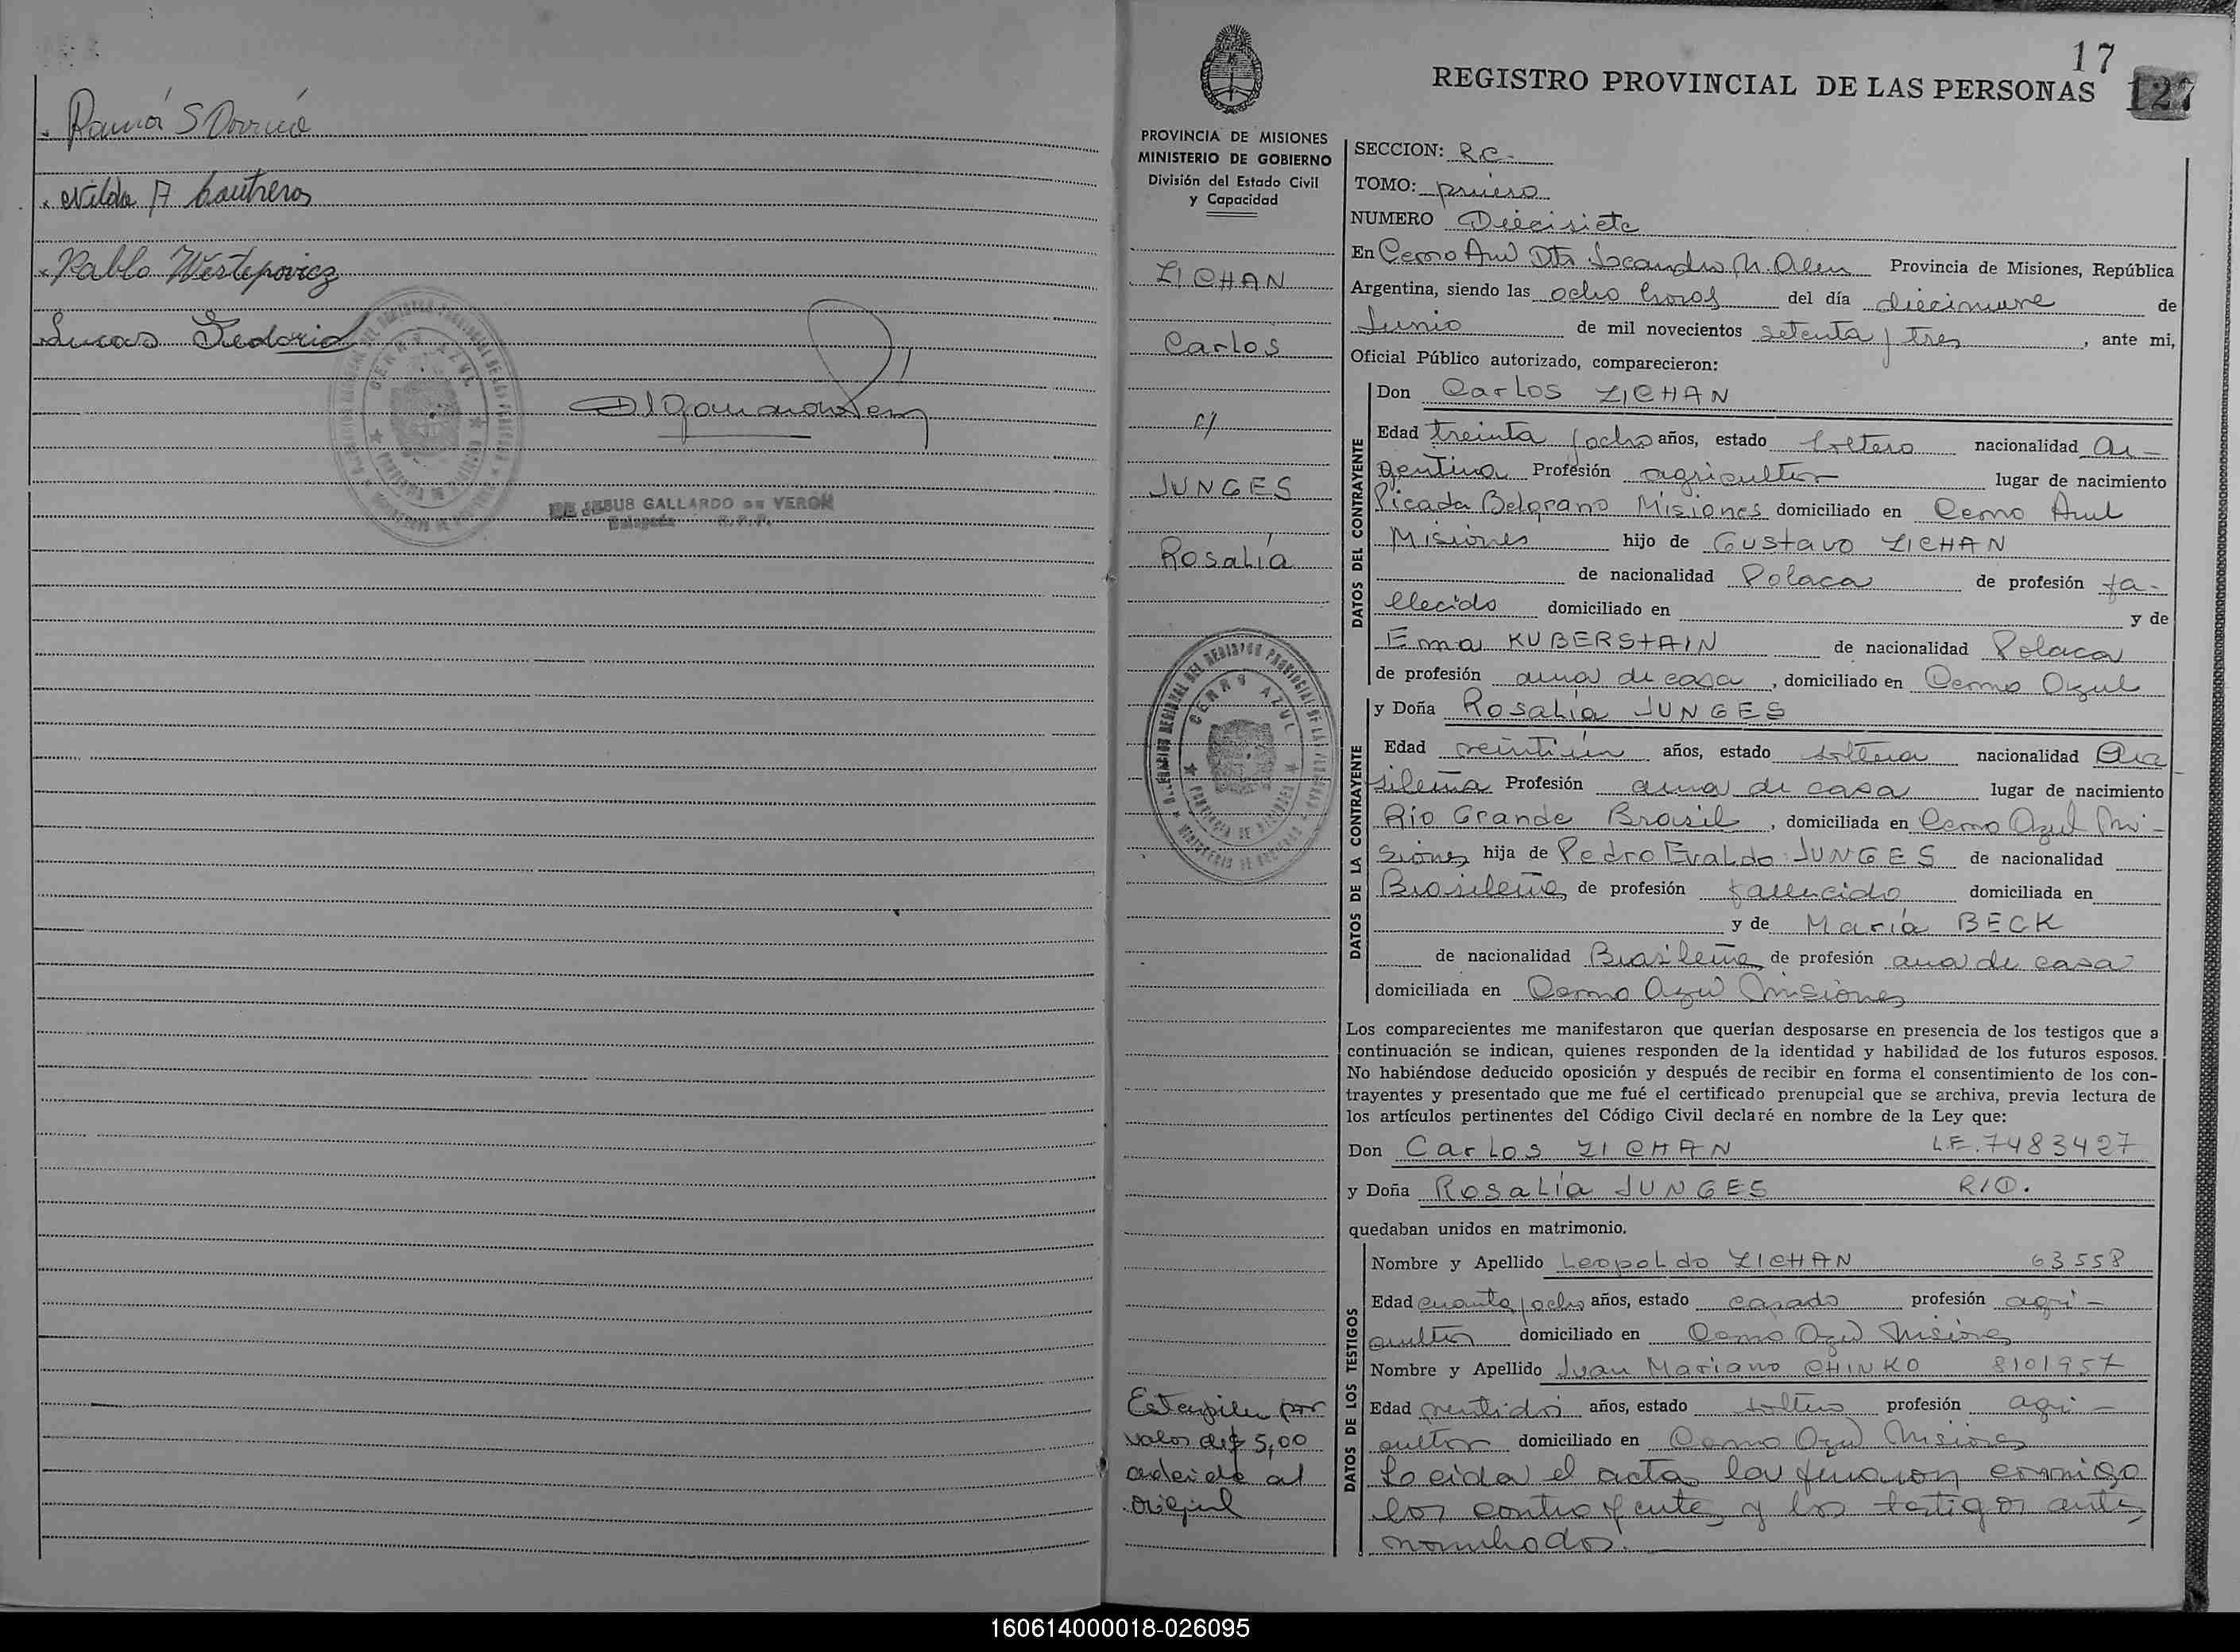 Nilda A
Pablo Westepovicz
Lucas
CERRO AZUL
DE JESUS GALLARDO DE VERON
Delegada R.P.P.
17
127
REGISTRO PROVINCIAL DE LAS PERSONAS
PROVINCIA DE MISIONES
MINISTERIO DE GOBIERNO
División del Estado Civil
y Capacidad
ZICHAN
Carlos
c/
JUNGES
Rosalía
CERRO AZUL
Estampilla por
valor de $ 5,00
adeida al
original
SECCION: R.C.
TOMO: primero
NUMERO Diecisiete
En Cerro Azul Dto Leandro N. Alem Provincia de Misiones, República
Argentina, siendo las ocho horas del día diecinueve de
Junio de mil novecientos setenta y tres, ante mi,
Oficial Público autorizado, comparecieron:
DATOS DEL CONTRAYENTE
Don Carlos ZICHAN
Edad treinta y ocho años, estado soltero nacionalidad Ar-
gentina Profesión agricultor lugar de nacimiento
Picada Belgrano Misiones domiciliado en Cerro Azul
Misiones hijo de Gustavo ZICHAN
de nacionalidad Polaca de profesión fa-
llecido domiciliado en y de
Ema KUBERSTAIN de nacionalidad Polaca
de profesión ama de casa, domiciliado en Cerro Azul
DATOS DE LA CONTRAYENTE
y Doña Rosalía JUNGES
Edad veintiun años, estado soltera nacionalidad Bra
sileña Profesión ama de casa lugar de nacimiento
Río Grande Brasil, domiciliada en Cerro Azul Mi-
siones hija de Pedro Evaldo JUNGES de nacionalidad
Brasileña de profesión fallecido domiciliada en
y de María BECK
de nacionalidad Brasileña de profesión ama de casa
domiciliada en Cerro Azul Misiones
Los comparecientes me manifestaron que querían desposarse en presencia de los testigos que a
continuación se indican, quienes responden de la identidad y habilidad de los futuros esposos.
No habiéndose deducido oposición y después de recibir en forma el consentimiento de los con-
trayentes y presentado que me fué el certificado prenupcial que se archiva, previa lectura de
los artículos pertinentes del Código Civil declaré en nombre de la Ley que:
Don Carlos ZICHAN L.E. 7483427
y Doña Rosalía JUNGES R/D.
quedaban unidos en matrimonio.
DATOS DE LOS TESTIGOS
Nombre y Apellido Leopoldo ZICHAN 63558
Edad cuarenta y ocho años, estado casado profesión agri-
cultor domiciliado en Cerro Azul Misiones
Nombre y Apellido Juan Mariano CHINKO 8101957
Edad veintidós años, estado soltero profesión agri-
cultor domiciliado en Cerro Azul Misiones
Leída el acta la firmaron conmigo
los contrayentes y los testigos ante
nombrados.
160614000018-026095